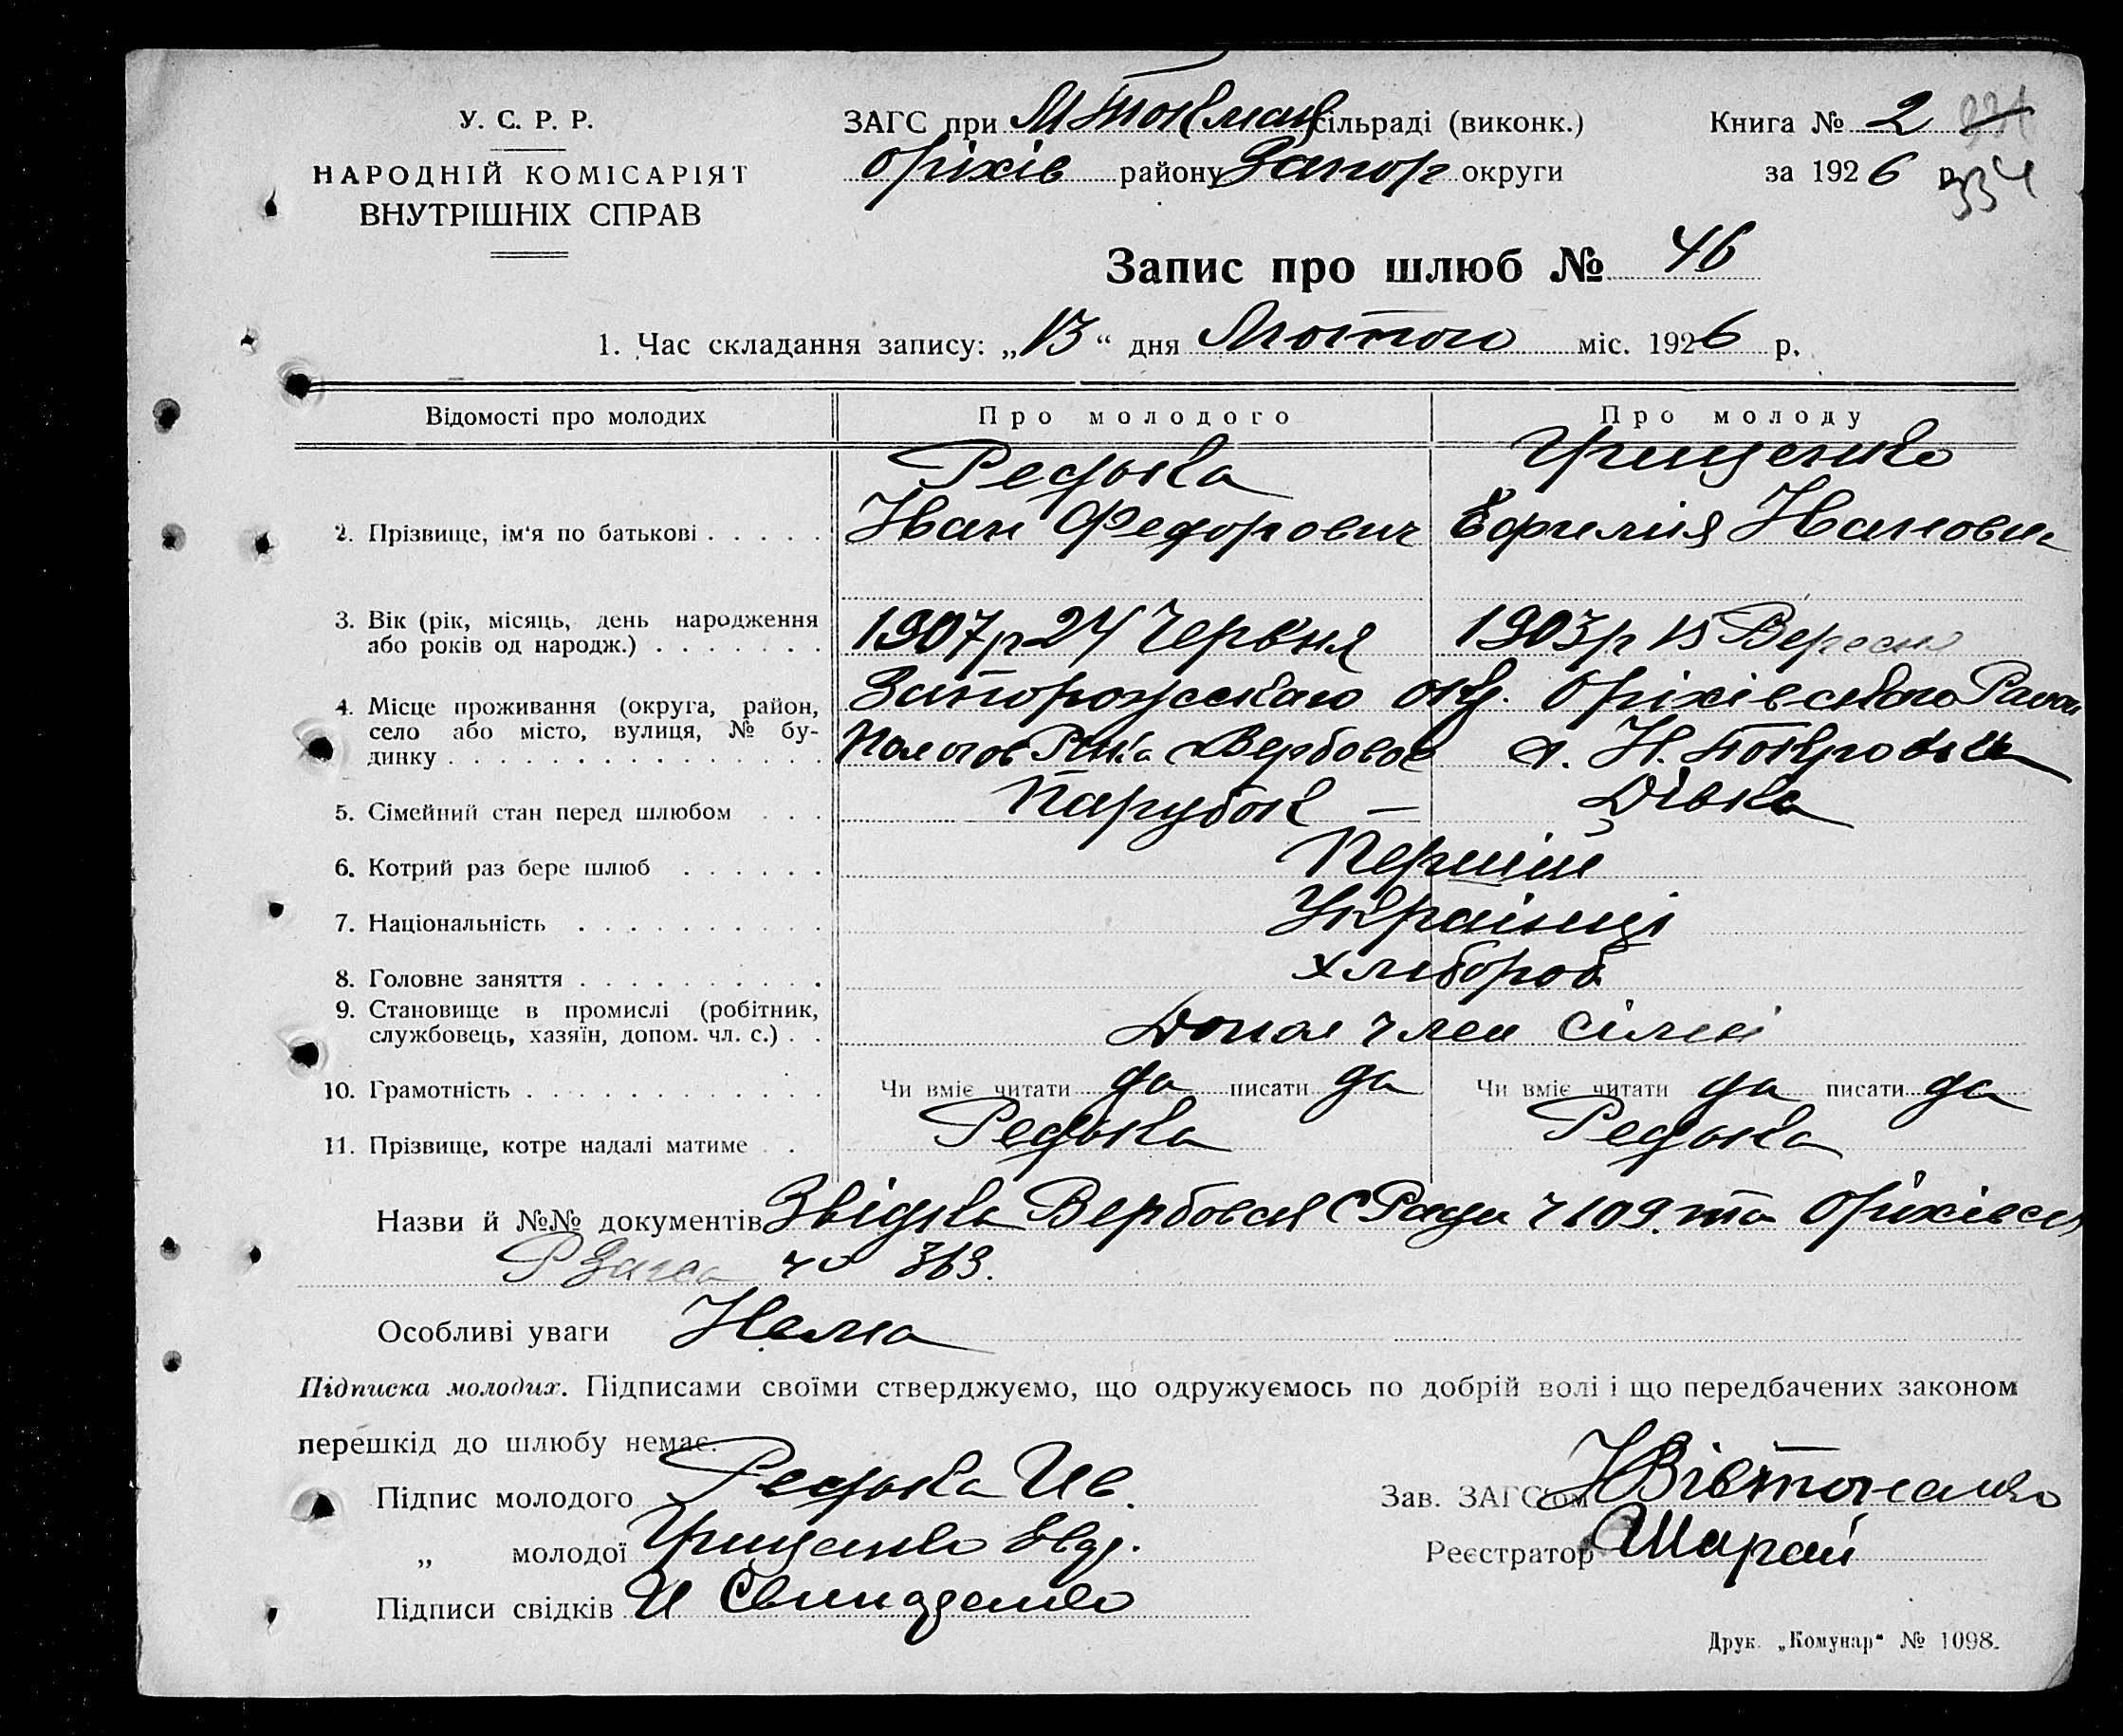 У. С. Р. Р.
НАРОДНІЙ КОМІСАРІЯТ
ВНУТРІШНІХ СПРАВ
ЗАГС при М Токмац сільраді (виконк.)
Оріхів району Запор округи
Книга № 2
за 1926 р.
334
Запис про шлюб № 46
1. Час складання запису: „13“ дня Лютого міс. 1926 р.
Відомості про молодих Про молодого Про молоду
Редька Грищенко
2. Прізвище, ім'я по батькові Іван Федорович Ефимия Ивановна
3. Вік (рік, місяць, день народження
або років од народж.) 1907р 24 Червня 1903р 15 Вересня
4. Місце проживання (округа, район,
село або місто, вулиця, № бу-
динку
Запорожскаго окр. Оріхівського Район
Пологов Р-на с Вербовое с. Н. Покровка
5. Сімейний стан перед шлюбом Парубок — Дівка
6. Котрий раз бере шлюб Перший
7. Національність Українці
8. Головне заняття хлибороб
9. Становище в промислі (робітник,
службовець, хазяїн, допом. чл. с.) Допом член сімені
10. Грамотність Чи вміє читати да писати да Чи вміє читати да писати да
11. Прізвище, котре надалі матиме Редька Редька
Назви й №№ документів Звідка Вербовськ С Ради ч 109. та Оріхівськ
Р Загса 363.
Особливі уваги Нема
Підписка молодих. Підписами своїми стверджуємо, що одружуємось по добрій волі і що передбачених законом
перешкід до шлюбу немає.
Підпис молодого Редька Ив.
„ молодої Грищенко Евд.
Підписи свідків И
Зав. ЗАГС'ом
Реєстратор Шарай
Друк. „Комунар“ № 1098.